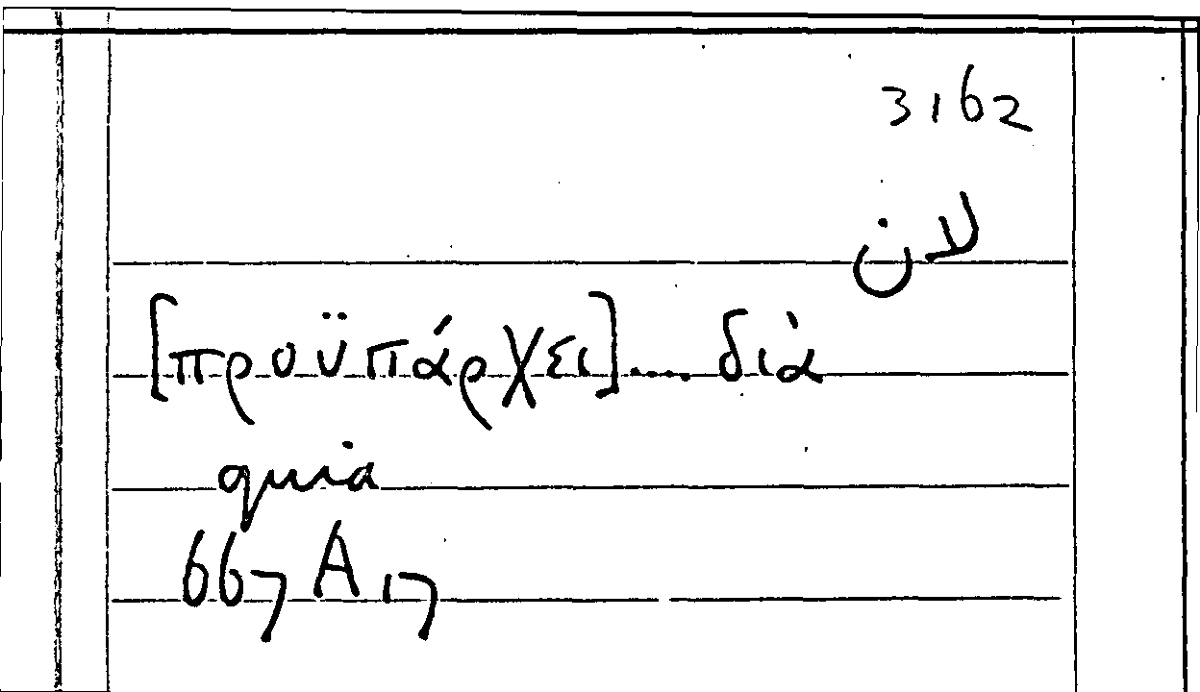 3162
لان
[προϋπάρχει].... διὰ
quia
667 A 17